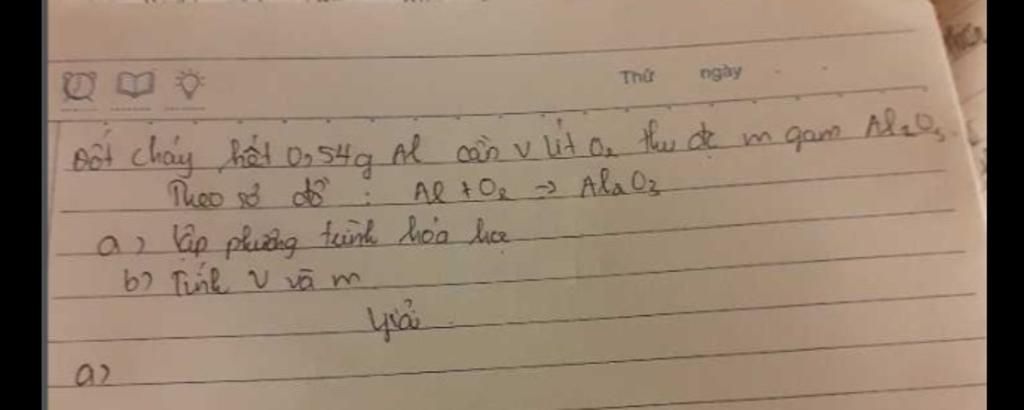 Thứ ngày
Đốt cháy hết 0,54g Al cần V lít O₂ thu đc m gam Al₂O₃.
Theo sơ đồ : Al + O₂ → Al₂O₃
a) lập phương trình hóa học
b) Tính V và m
Giải
a)